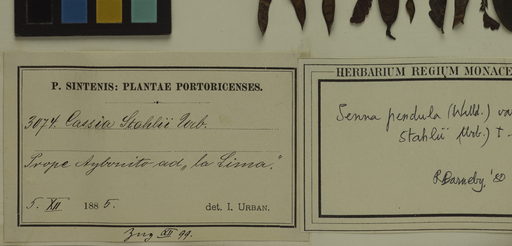 P. SINTENIS: PLANTAE PORTORICENSES.
3074. Cassia Stahlii Urb.
Prope Aybonito ad „la Lima".
5. XII 1885. det. I. URBAN.
XII 99.
HERBARIUM REGIUM MONACE
Senna pendula (Willd.) va
Stahlii (Urb.) I
R Barneby. '80